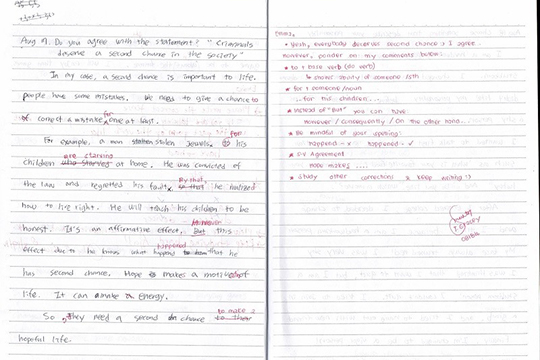 Aug 9. Do you agree with the statement? "Criminals
deserve a second chance in the society"
In my case, a second chance is important to life.
people have some mistakes. We need to give a chance to
correct a mistake for one at last.
For example, a man stolen jewels. for his
children who starved are starving at home. He was convicted of
the law and regretted his fault. so that By that, he realized
how to live right. He will teach his children to be
honest. It's an affirmative effect. But However this
effect due to he knows what happend happened that he
has second chance. Hope makes a motive of
life. It can make energy.
So, they need a second chance to their to make a
hopeful life.
• Yeah, everybody deserves second chance :) I agree..
However, ponder on my comments below:
• to + base verb (do verb)
↳ shows ability of someone /sth
• for + someone/noun
...for his children...
• Instead of "But" you can have:
However / Consequently / On the other hand...
• Be mindful of your spelling:
happend - x happened - ✓
• SV Agreement
Hope makes ....
• Study other corrections & keep writing :)